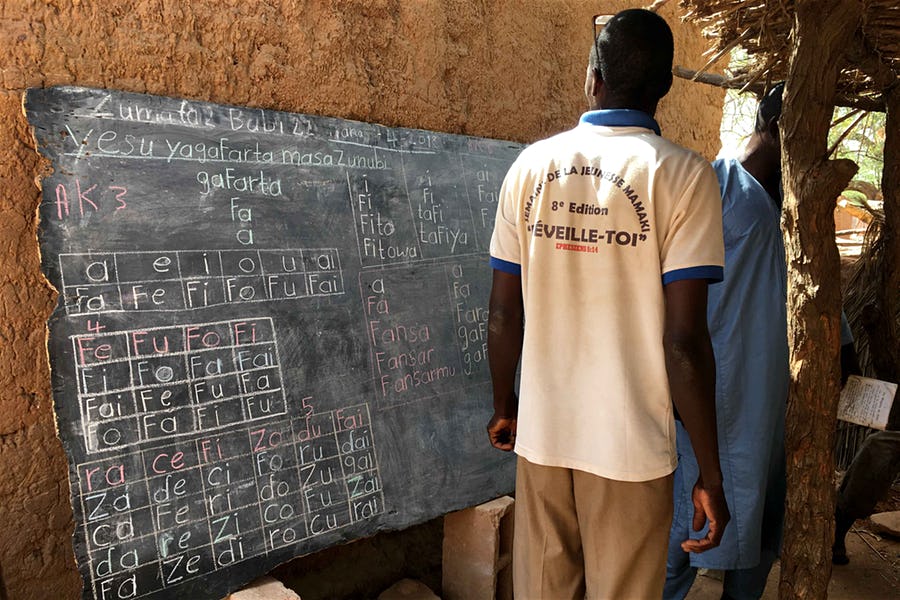 Zumata
Yesu yagaFarta masa Zunubi
AK 3
gaFarta
Fa
a
a e i o u ai
Fa Fe Fi Fo Fu Fai
4
Fe Fu Fo Fi
Fi Fo Fa Fai
Fai Fe Fu Fa
Fo Fa Fi Fu
5
ra ce Fi Zo du Fai
Za de ci Fo ru dai
ca Fe ri do Zu gai
da re Zi co Fu Zai
Fa Ze di ro cu rai
i
Fi
Fito
Fitowa
i
Fi
taFi
taFiya
a
Fa
Fansa
Fansar
Fansarmu
SEMAINE DE LA JEUNESSE MAMAKI
8e Edition
"ÉVEILLE-TOI"
EPHESIENS 5:14